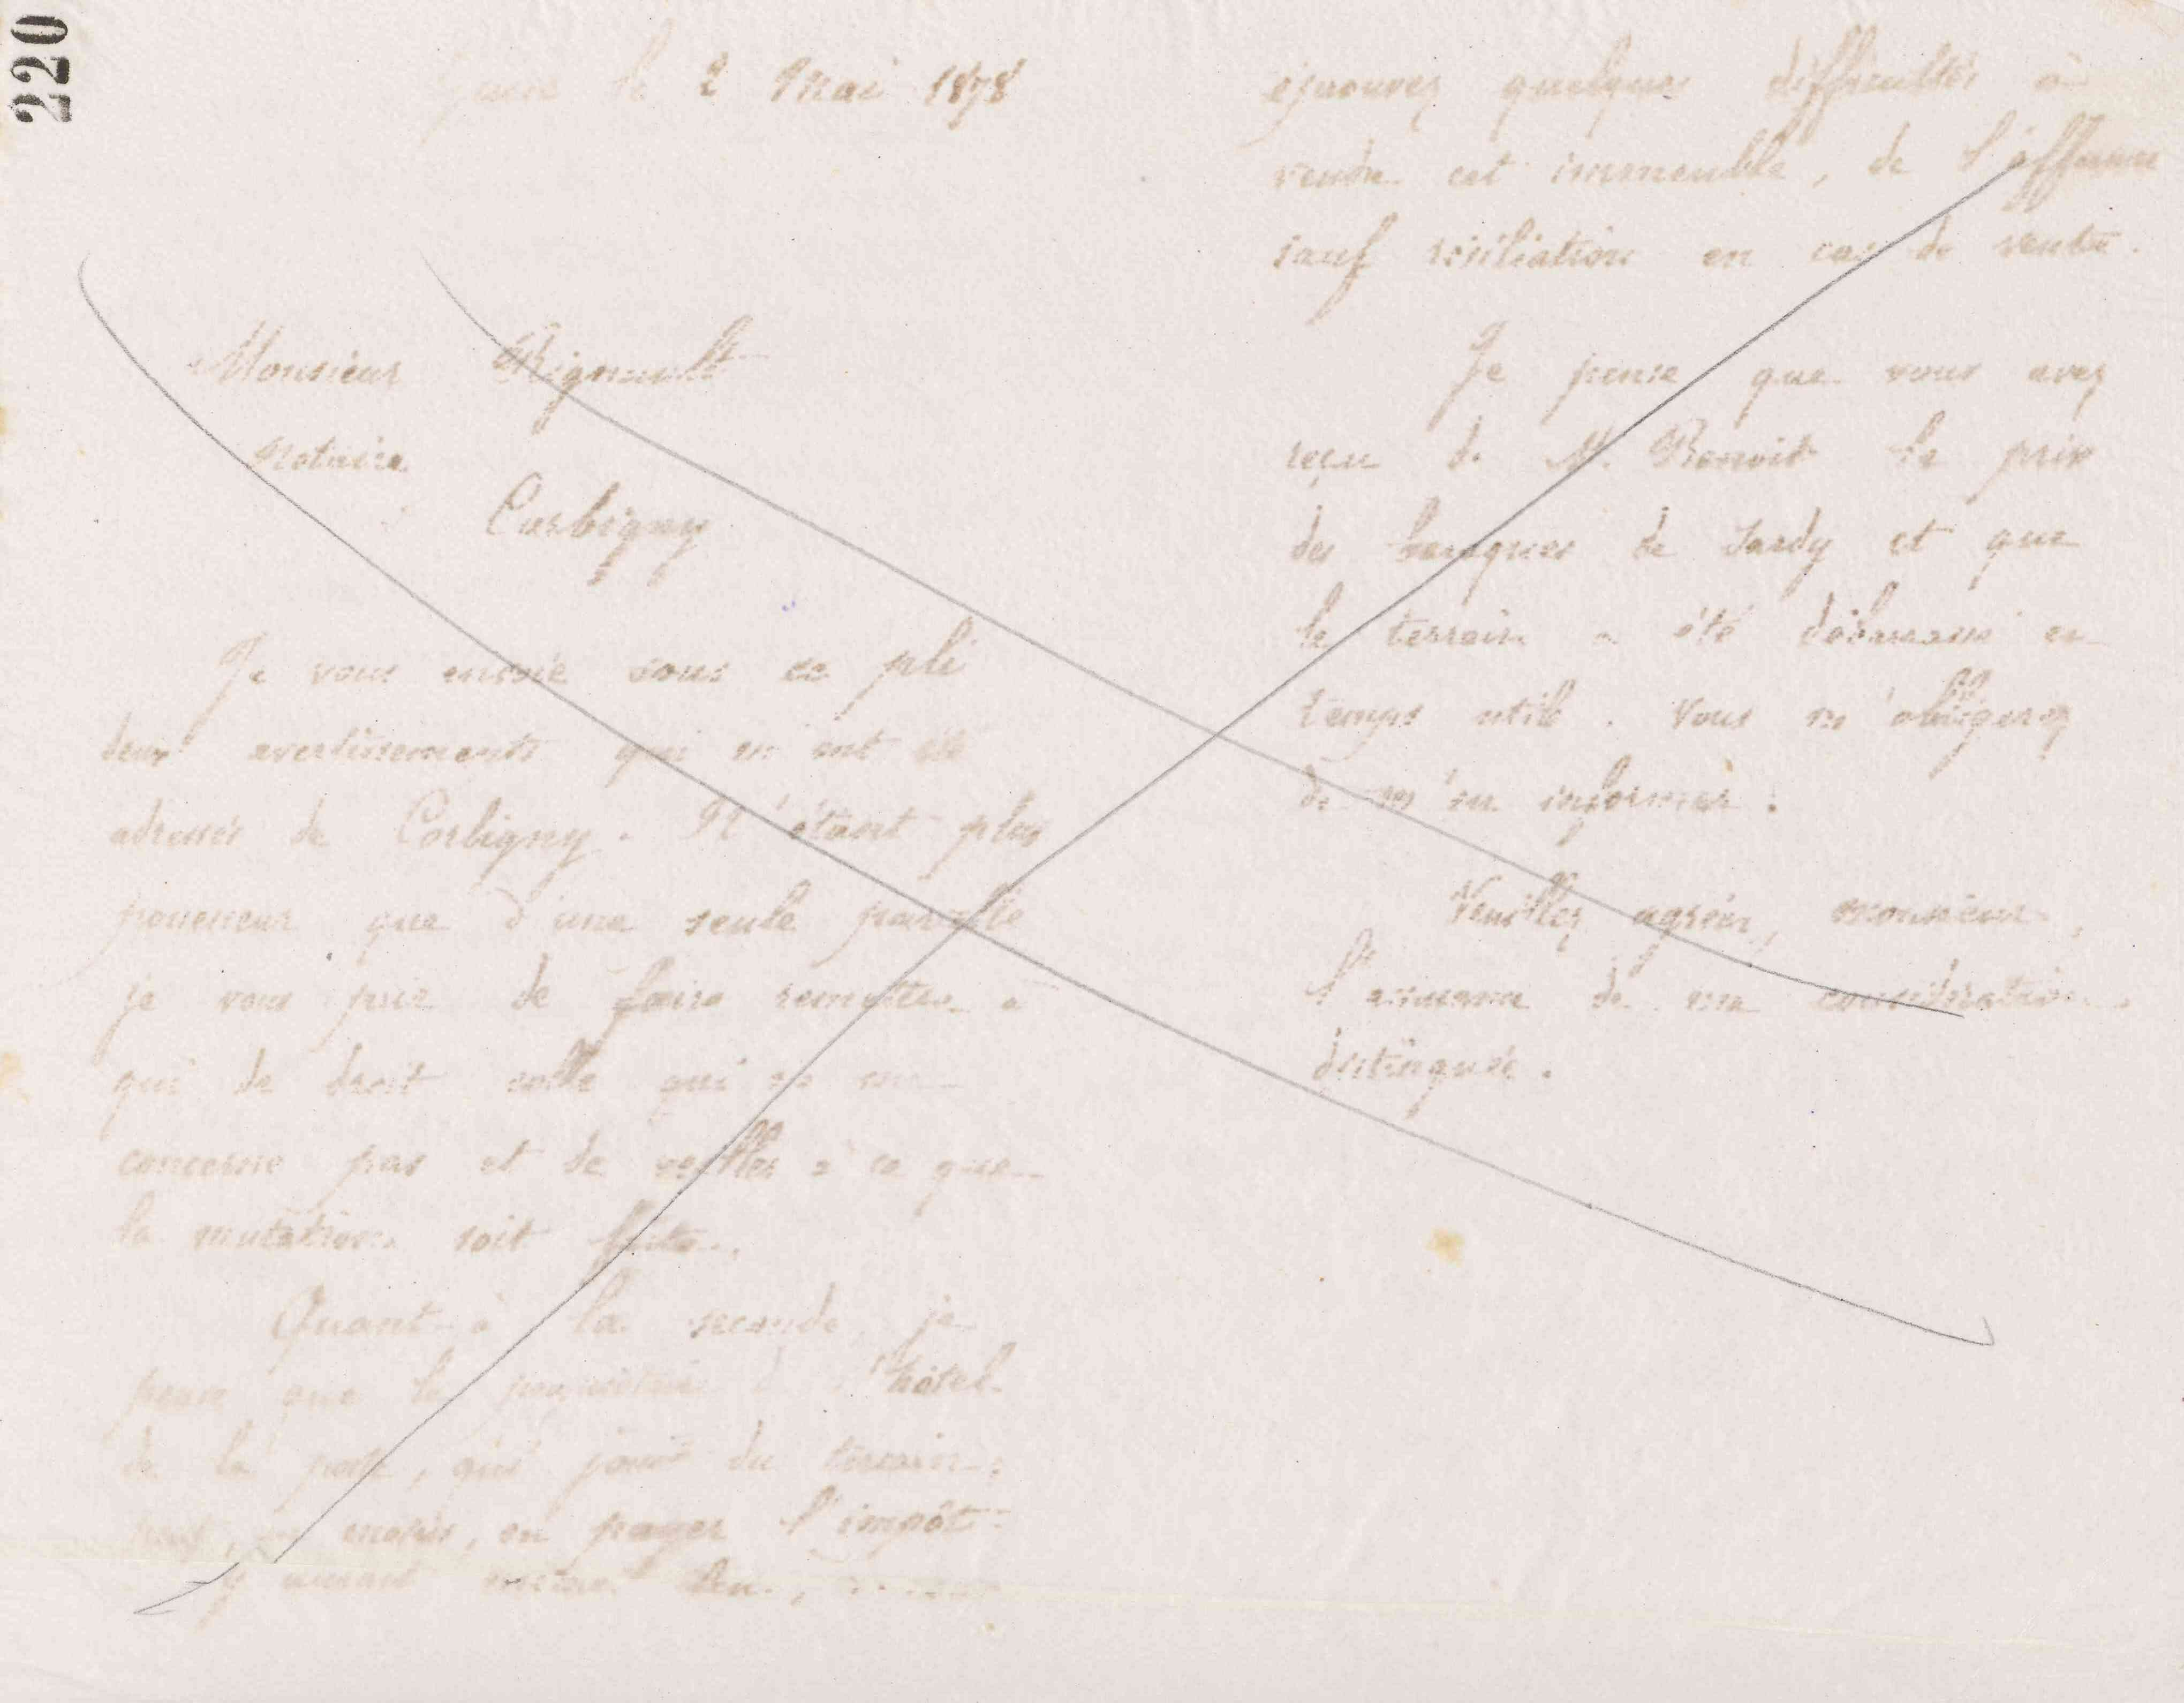 220
le 2 Mai 1878
Monsieur Regnault
Notaire
Corbigny
Je vous envoie sous ce pli
deux avertissements qui m'ont été
adressés de Corbigny. N'étant plus
possesseur que d'une seule parcelle
je vous prie de faire remettre à
qui de droit celle qui ne me
concerne pas et de veiller à ce que
la mutation soit faite.
Quant à la seconde, je
pense que le propriétaire de l'hôtel
de la poste, qui jouit du terrain
en payer l'impôt
y aurait même lieu,
éprouvez quelques difficultés à
vendre cet immeuble, de l'affermer
sauf résiliation en cas de vente.
Je pense que vous avez
reçu de M. Benoit le prix
des baraques de Sardy et que
le terrain a été débarrassé en
temps utile. Vous m'obligerez
de m'en informer.
Veuillez agréer, monsieur,
l'assurance de ma considération
distinguée.